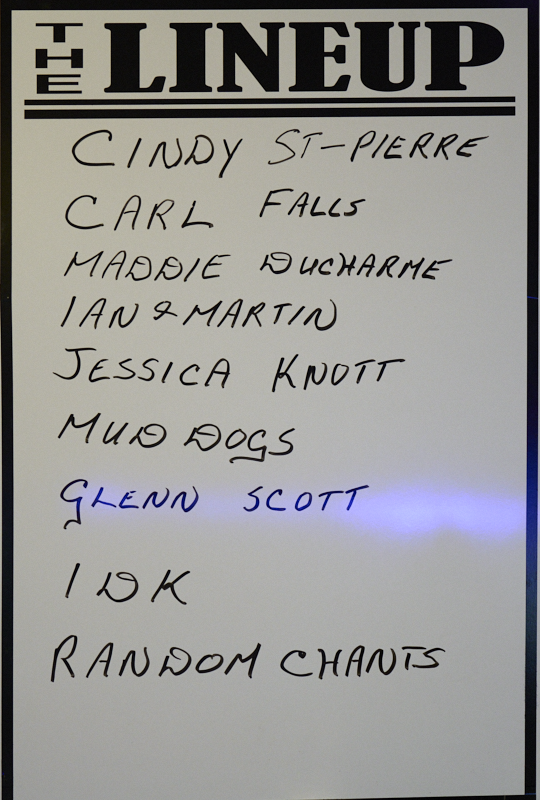 THE LINEUP
CINDY ST-PIERRE
CARL FALLS
MADDIE DUCHARME
IAN & MARTIN
JESSICA KNOTT
MUD DOGS
GLENN SCOTT
IDK
RANDOM CHANTS